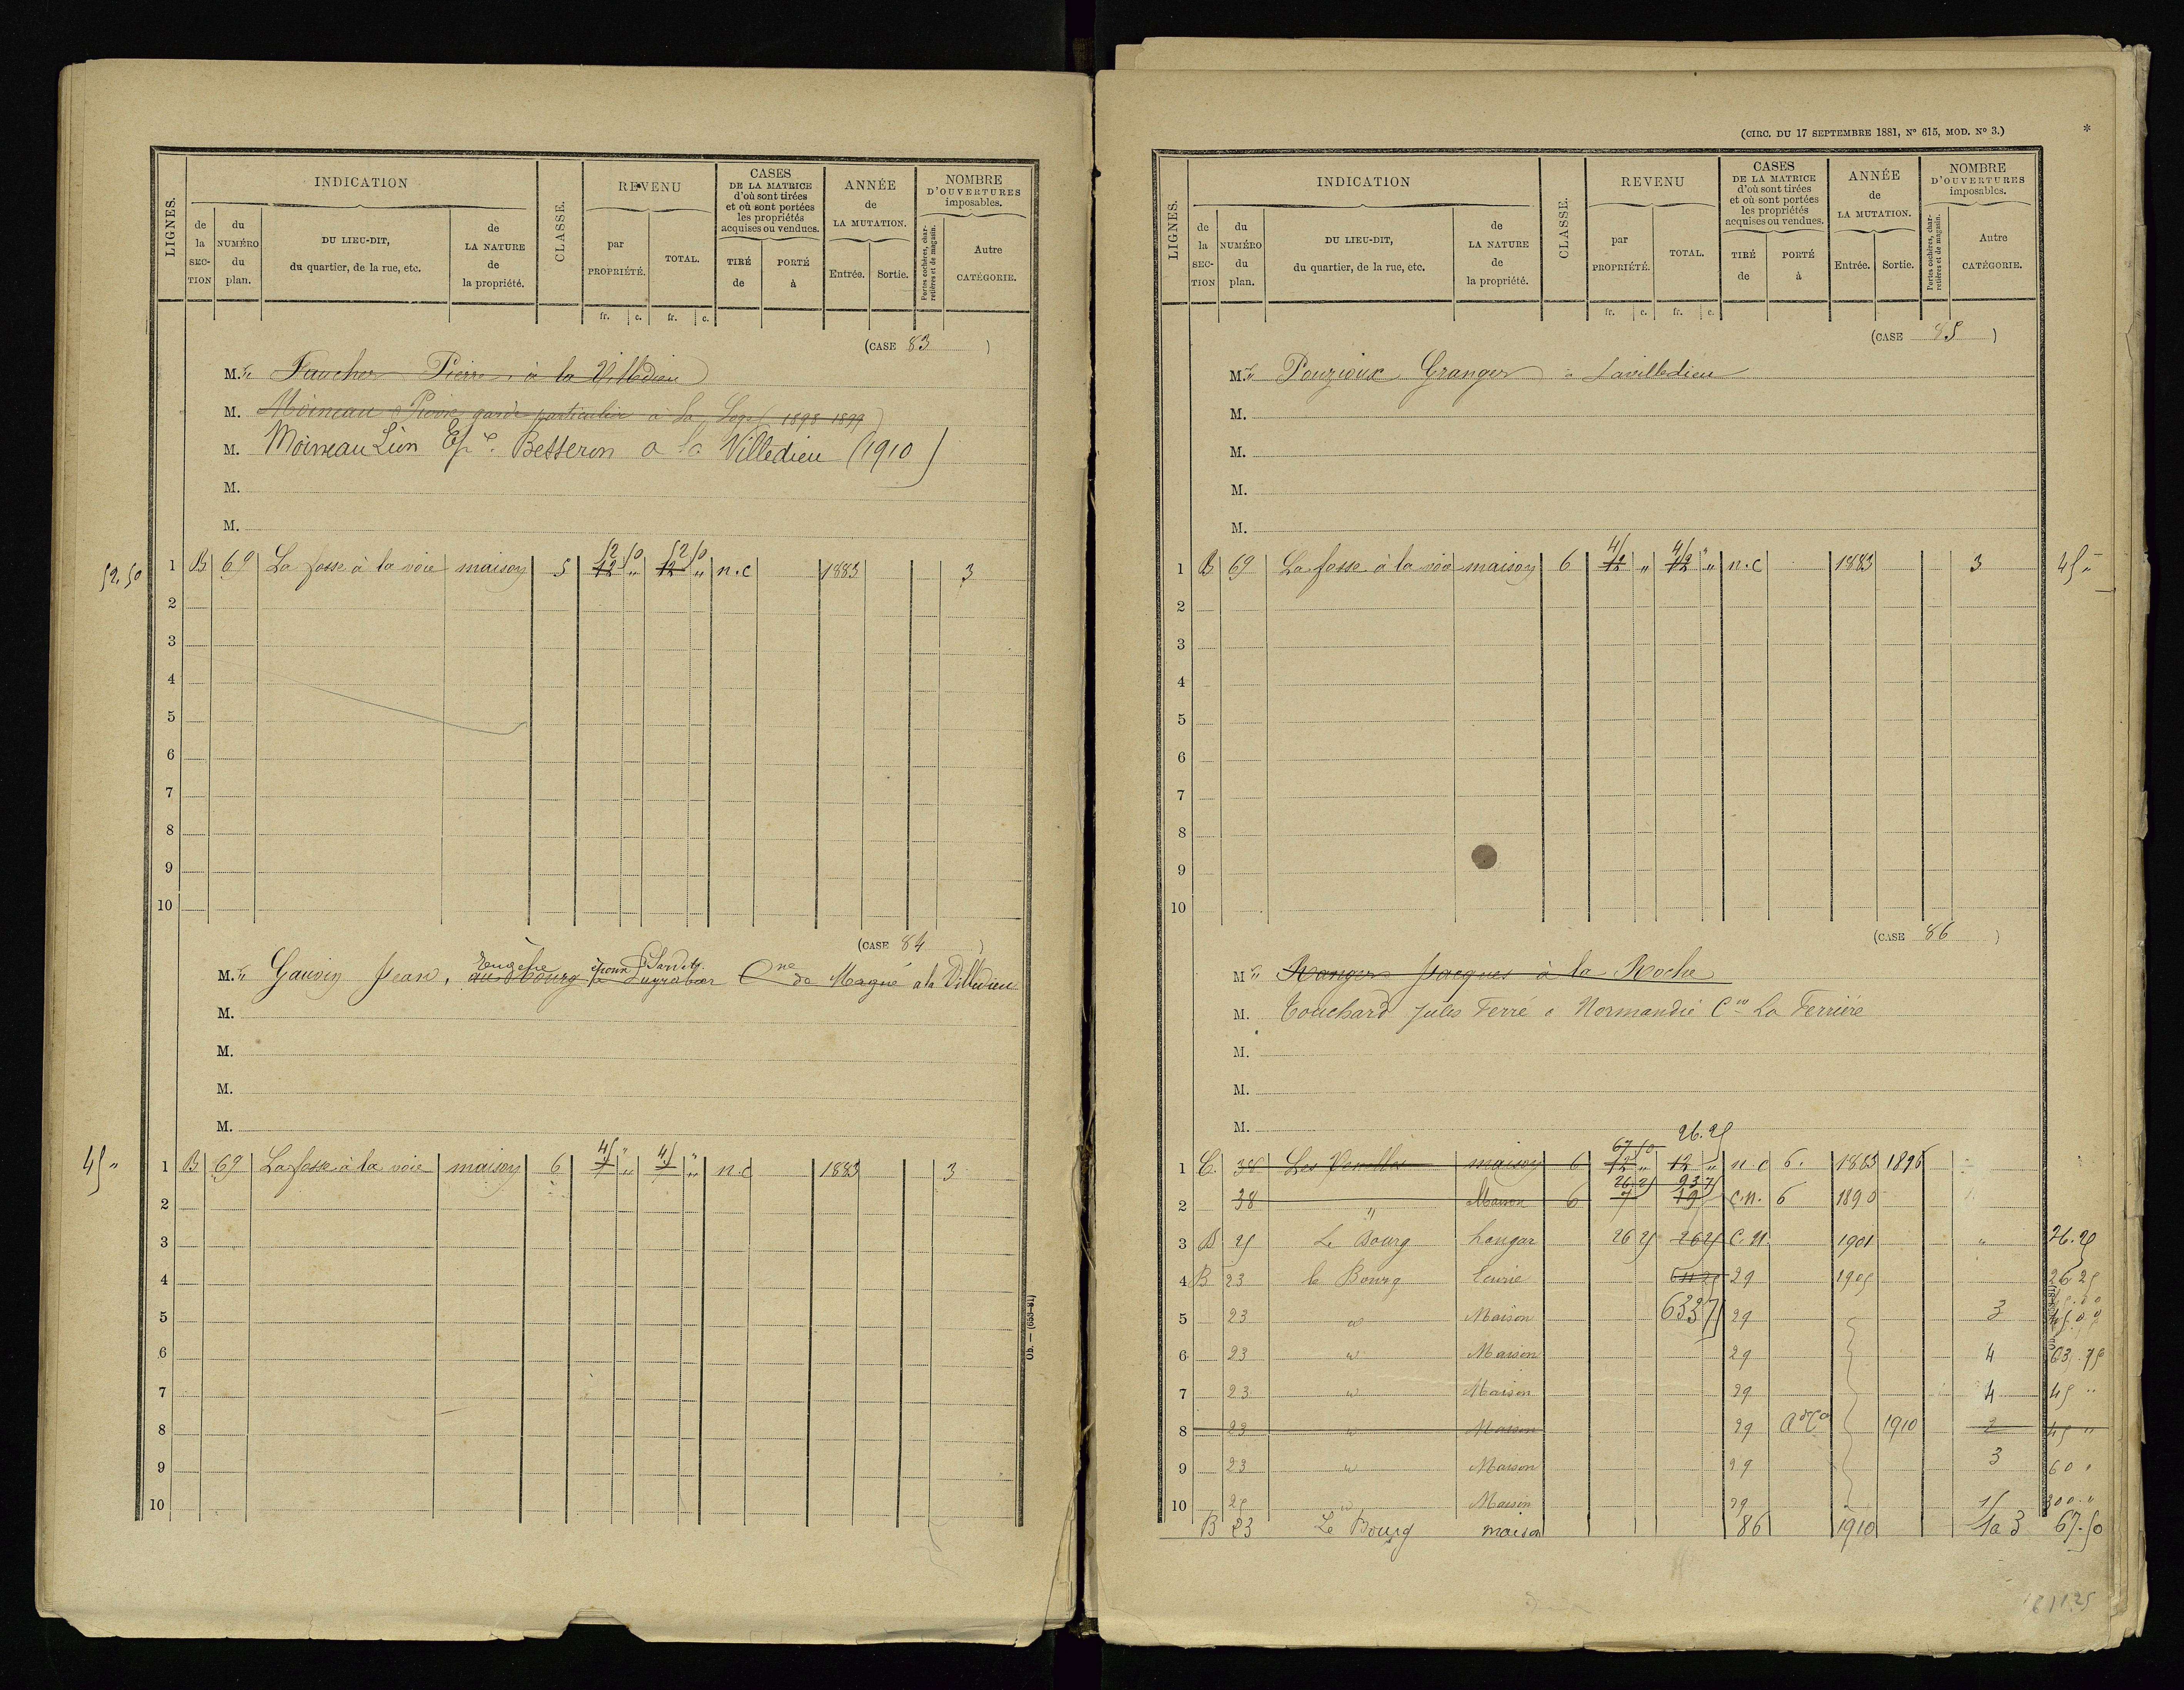 LIGNES.
INDICATION
de la SECTION
du NUMÉRO du plan.
DU LIEU-DIT, du quartier, de la rue, etc.
de LA NATURE de la propriété.
CLASSE.
REVENU
par PROPRIÉTÉ.
TOTAL.
CASES DE LA MATRICE d'où sont tirées et où sont portées les propriétés acquises ou vendues.
TIRÉ de
PORTÉ à
ANNÉE de LA MUTATION.
Entrée.
Sortie.
NOMBRE D'OUVERTURES imposables.
Portes cochères, charretières et de magasin.
Autre CATÉGORIE.
fr. c. fr. c.
(CASE 83)
M. Faucher Pierre, à la Villedieu
M. Moineau Pierre garde particulier a la 1898 1899
M. Moineau Léon Betseron a la Villedieu (1910)
M.
M.
52.50 1 B 69 La fosse à la voie maison 5 52 50 12 " 52 50 12 " n.c 1883 3
2
3
4
5
6
7
8
9
10
(CASE 84)
M. Gauvin Jean, au Bourg Cne de Magné a la Villedieu
M.
M.
M.
M.
45 " 1 B 69 La fosse à la voie maison 6 45 " 7 " 45 " 7 " n.c 1883 3
2
3
4
5
6
7
8
9
10
Ob. — (653-81)
(CIRC. DU 17 SEPTEMBRE 1881, N° 615, MOD. N° 3.)
*
LIGNES.
INDICATION
de la SECTION
du NUMÉRO du plan.
DU LIEU-DIT, du quartier, de la rue, etc.
de LA NATURE de la propriété.
CLASSE.
REVENU
par PROPRIÉTÉ.
TOTAL.
CASES DE LA MATRICE d'où sont tirées et où sont portées les propriétés acquises ou vendues.
TIRÉ de
PORTÉ à
ANNÉE de LA MUTATION.
Entrée.
Sortie.
NOMBRE D'OUVERTURES imposables.
Portes cochères, charretières et de magasin.
Autre CATÉGORIE.
fr. c. fr. c.
(CASE 85)
M. Pouzioux Granger à Lavilledieu
M.
M.
M.
M.
1 B 69 La fosse à la voie maison 6 45 12 " 45 " 12 " n.c 1883 3 45 "
2
3
4
5
6
7
8
9
10
(CASE 86)
M. Ranger Jacques à la Roche
M. Touchard Jules Ferré a Normandie Cne La Ferrière
M.
M.
M.
26.25
1 C 38 Les Venelles maison 6 67 50 12 " 12 " n.c 6. 1883 1896
2 38 " Maison 6 26 25 7 93 75 19 C.N. 6 1890
3 B 25 Le Bourg hangar 26 25 26 25 C.N. 1901 " 26.25
4 B 23 le Bourg Ecurie 29 1905 26 25
5 23 " Maison 633 75 29 3 45.00
6 23 " Maison 29 4 63.75
7 23 " Maison 29 4 45 "
8 23 " Maison 29 1910 2 45 "
9 23 " Maison 29 3 60 "
10 25 " Maison 29 300 "
B 23 Le Bourg maison 86 1910 1a 3 67.50